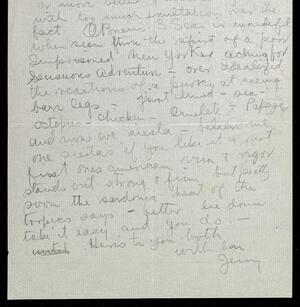 or more
with too much exultation over the
fact O Ponens Spain is wonderful
when seen thru the spirit of a poor
Imprisoned New Yorker aching for
Sensuous Adventure – over idealized
the reactions of a at seeing
bare legs – first
octopus – chicken – Omelete &
and now we siesta – believe me
one siestas if you like it or not
first ones american vim & vigor
stands out strong & firm but pretty
soon the sardonic heat of the
tropics says – better lie down
take it easy and you do –
Heres to you both
with love
Jenny